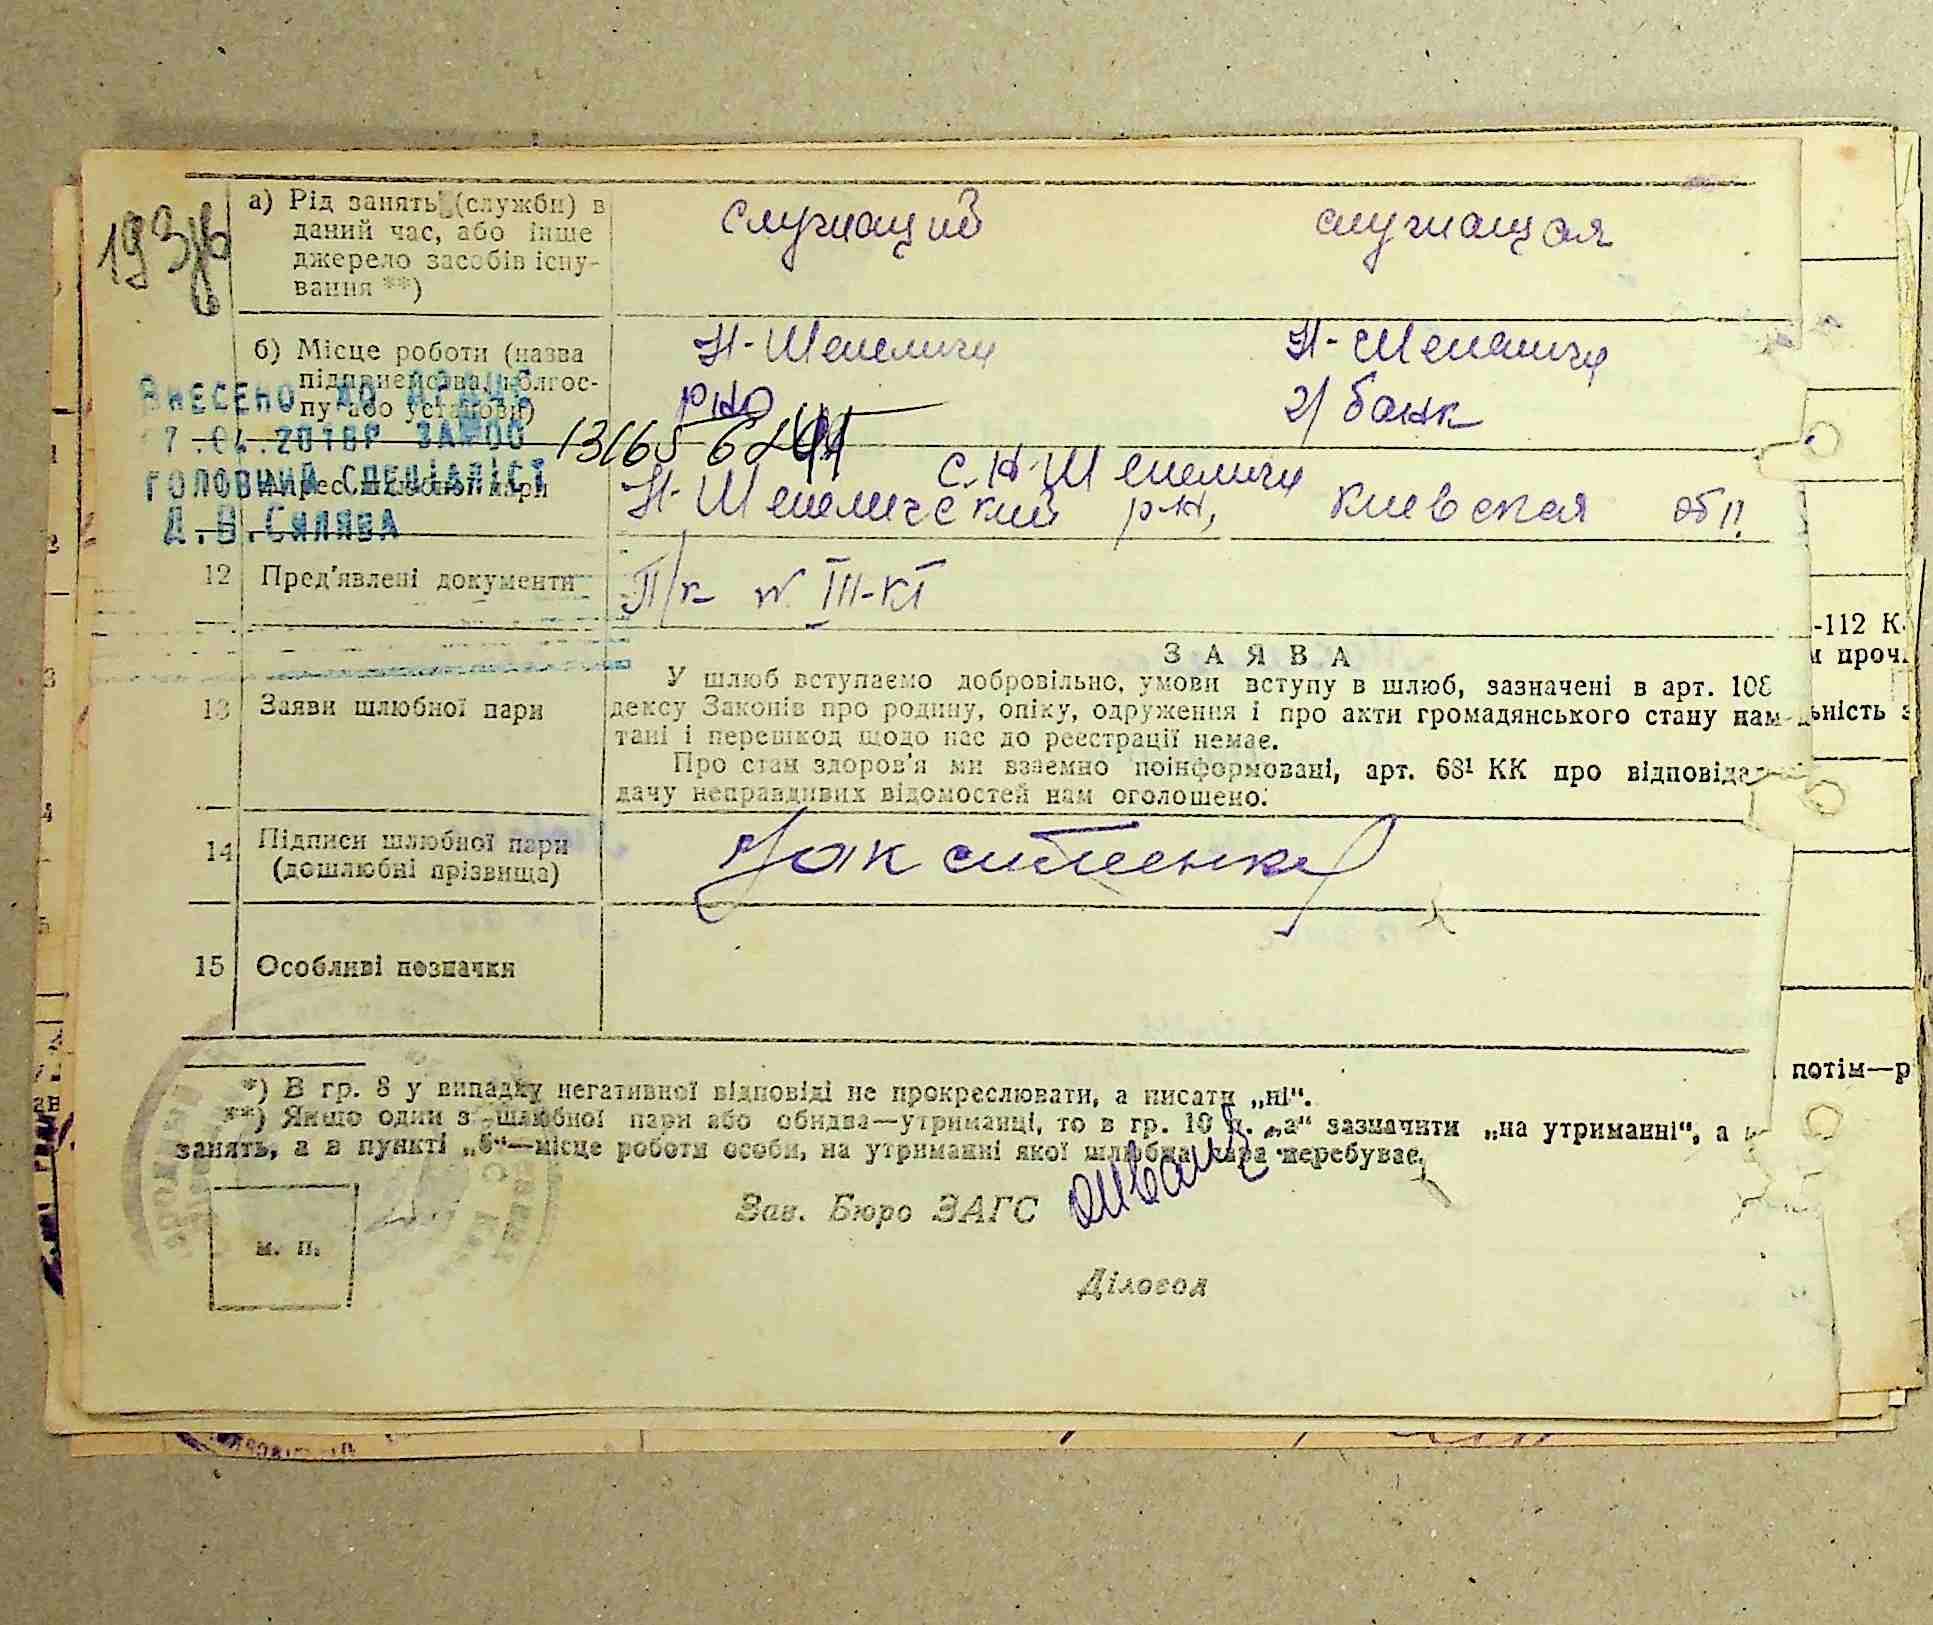 а) Рід занять (служби) в
даний час, або інше
джерело засобів існу-
вання **)
служащий
служащая
б) Місце роботи (назва
підприємства, колгос-
пу або установи)
Н-Шепеличи
РНО
Н-Шепеличи
г/банк
ВНЕСЕНО ДО ДРАЦС
7.04.2018Р ЗА №00
13165
ГОЛОВНИЙ СПЕЦІАЛІСТ
шлюбної пари
с. Н-Шепеличи
Н-Шепелический р-н, Киевская обл
12 Пред'явлені документи
П/к № III-КГ
ЗАЯВА
13 Заяви шлюбної пари
У шлюб вступаємо добровільно, умови вступу в шлюб, зазначені в арт. 108
дексу Законів про родину, опіку, одруження і про акти громадянського стану нам
тані і перешкод щодо нас до реєстрації немає.
Про стан здоров'я ми взаємно поінформовані, арт. 68¹ КК про відповіда
дачу неправдивих відомостей нам оголошено.
14 Підписи шлюбної пари
(дошлюбні прізвища)
15 Особливі позначки
*) В гр. 8 у випадку негативної відповіді не прокреслювати, а писати „ні“.
**) Якщо один з шлюбної пари або обидва—утриманці, то в гр. 10 п. „а“ зазначити „на утриманні“, а
занять, а в пункті „б“—місце роботи особи, на утриманні якої шлюбна пара перебуває.
Зав. Бюро ЗАГС
м. п.
Діловод
-112 К.
м проч.
ьність з
потім—р